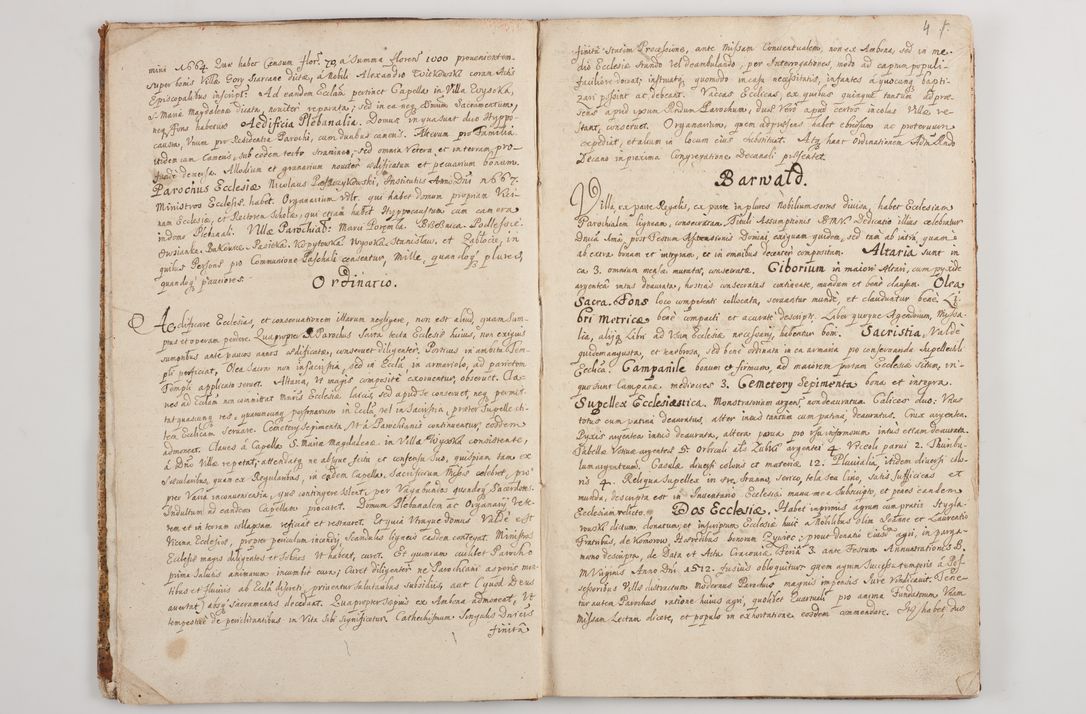 mini 1664. Quæ habet Censum flor. 70 a Summa florens 1000 provenientem
super bonis Villæ Gory dictæ, a Nobili Alexandro coram Actis
Episcopalibus inscript. Ad eandem Ecclam pertinet Capella in Villa Wysoka,
S. Mariæ Magdalenæ dicata, noviter reparata, sed in ea neq Divinum Sacramentum,
neq Fons habetur. Aedificia Plebanalia. Domus in qua sunt duo Hyppo-
causta, Unum pro Residentia Parochi, cum duabus cameris. Alterum pro Familia
itidem cum Camera, sub eodem tecto stramineo, sed omnia Vetera et in terram pro-
devexa. Allodium et granarium noviter ædificatum et pecuarium bonum.
Parochus Ecclesiæ Nicolaus Institutus Anno Dni 1667.
Ministros Ecclesiæ habet. Organarium Vdlt. qui habet domum propriam Vici-
nam Ecclesiæ, et Rectorem Scholæ, qui etiam habet Hyppocaustum cum camera
in domo Plebanali. Villæ Parochiales: Maria Poremba. Podlesie.
Owsianka. Pasieka. Kopytowka Wysoka, Stanislaw, et Zablocie, in
quibus Personæ pro Communione Paschali censentur, Mille, quandoq plures,
quandoq pauciores.
Ordinatio.
Aedificare Ecclesias, et conservationem illarum negligere, non est aliud, quam Sum-
ptus et operam perdere. Quapropter Parochus Sarta tecta Ecclesiæ huius, non exiguis
sumptibus ante paucos annos ædificatæ, conservet diligenter, Porticus in ambitu Tem-
pli perficiat, Olea Sacra non in Sacristia, sed in Eccla in armariolo, ad parietem
Templi applicato servet. Altaria, Ut magis composite exornentur, observet. Cla-
ves ad Eccliam non committat Ecclesiæ laicis, sed apud se conservet, neq permit-
tat quasvis res, quarumcunq personarum in Eccla, vel in Sacristia, præter Supelle-
ctilem Ecclicam, Servare. Cemetery Sepimenta, Ut a Parochianis continuentur, eosdem
admoneat. Claves a Capella S. Mariæ Magdalenæ in Villa Wysoka consistente,
a Dno Villæ repetat, attendatq ne absque scitu et consensu Suo, quispiam tam ex
Sæcularibus, quam ex Regularibus, in eadem Capella, Sacrificium Missæ celebret, pro-
pter Varia inconvenientia, quæ contingere solent, per Vagabundos quosdam Sacerdotes.
Indultum ad eandem Capellam procuret. Domum Plebanalem ac Organarij Vete-
rem et in terram collapsam reficiat et restauret. Et quia Utraque domus Valde est
Vicina Ecclesiæ, propter periculum incendij, Scandulis ligneis easdem contegat. Ministros
Ecclesiæ magis diligentes et Ut habeat, curet. Et quoniam cuilibet Parocho
prima Salutis animarum incumbit cura; Curet diligenter ne Parochiani asperis mon-
tibus et fluvijs ab Eccla disjuncti priventur salutaribus Subsidijs, aut (quod Deus
avertat) absq Sacramentis decedant. Quapropter Sæpius ex Ambona admoneat, Ut
tempestive de periclitantibus in Vita Sibi Significetur. Cathechismum Singulis Dnicis
finita

4
finita statim Processione, ante Missam Conventualem, non ex Ambona, sed in me-
dio Ecclesiæ Stando vel deambulando, per Interrogationes, modo ad captum populi
faciliori doceat, instruatq, quomodo in casu necessitatis, infantes a quocunq bapti-
zari possint ac debeant. Vaccas Ecclicas, ex quibus quinque tantum ad præ-
sens apud ipsum Rndum Parochum, duæ Vero apud certos incolas Villæ re-
stant, conservet. Organarium, quem ad præsens habet ebriosum ac protervum
expediat, et alium in locum eius substituat. Atq hanc ordinationem Adm Rndo
Decano in proxima Congregatione Decanali præsentet.
Barwald.
Villa, ex parte Regalis, ex parte in plures nobilium sortes divisa, habet Ecclesiam
Parochialem ligneam, consecratam, Tituli Assumptionis BMV. Dedicatio illius celebratur
Dnica Ima, post Festum Ascensionis Domini exiguam quidem, sed tam ab intra quam
ab extra bonam et integram, et in omnibus decenter compositam. Altaria sunt in
ea 3. omnium mensæ muratæ, consecratæ. Ciborium in maiori Altari, cum pyxide
argentea intus deaurata, hostias consecratas continente, mundum et bene clausum. Olea
Sacra. Fons loco competenti collocata, servantur munde, et clauduntur bene. Li-
bri Metricæ bene compacti et accurate descripti. Libri quoque Agendorum, Missa-
lia, aliiq Libri ad Usum Ecclesiæ necessarij, habentur boni. Sacristia, Valde
quidem angusta, et tenebrosa, sed bene ordinata in ea armaria pro conservanda Supellectili
Ecclica. Campanile bonum et firmum, ad maiorem portam Ecclesiæ Situm, in
quo sunt Campanæ mediocres 3. Cemetery Sepimenta bona et integra.
Supellex Ecclesiastica. Monstratorium argent. non deauratum. Calices duo: Unus
totus cum patina deauratus, alter intus tantum cum patina, deauratus. Crux argentea.
Pyxis argentea intus deaurata, altera parva pro Usu infirmorum intus etiam deaurata.
Tabellæ Votivæ argenteæ 5. Orbiculi argentei 4. Urceoli parvi 2. Thuribu-
lum argenteum. Casulæ diversi coloris et materiæ 12. Pluvialia, itidem diversi colo-
ris 4. Reliqua Supellex in ære, stanno, serico, tela seu lino, satis sufficiens et
munda, descripta est in Inventario Ecclesiæ manu mea Subscripto, et penes eandem
Ecclesiam relicto. Dos Ecclesiæ. Habet inprimis agrum cum pratis Stygla-
rowski dictum, donatum, et inscriptum Ecclesiæ huic a Nobilibus olim et Laurentio
Fratribus, de Komorow Hæredibus bonorum Zywiec, prout donatio eiusd agri, in perga-
meno descripta, de Data et Acta Cracoviæ Feria 3. ante Festum Annuntiationis B.
M. Virginis Anno Dni 1512. fusius obloquitur quem agrum Successu temporis a Pos-
sessoribus Villæ distractum Modernus Parochus magnis impensis Iure Vindicavit. Tene-
tur autem Parochus ratione huius agri, quolibet Quartuali pro anima Fundatorum Unam
Missam Lectam dicere, et populo in exhortatione eosdem commendare. Itq habet, duo